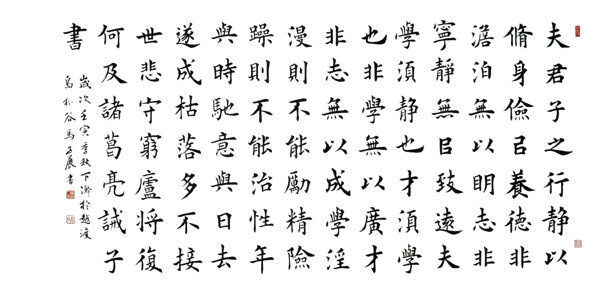 夫君子之行靜以
脩身儉㠯養德非
澹泊無以明志非
寧靜無㠯致遠夫
學須靜也才須學
也非學無以廣才
非志無以成學淫
漫則不能勵精險
躁則不能治性年
與時馳意與日去
遂成枯落多不接
世悲守窮廬將復
何及諸葛亮誡子
書
歲次壬寅季秋下澣於越渡